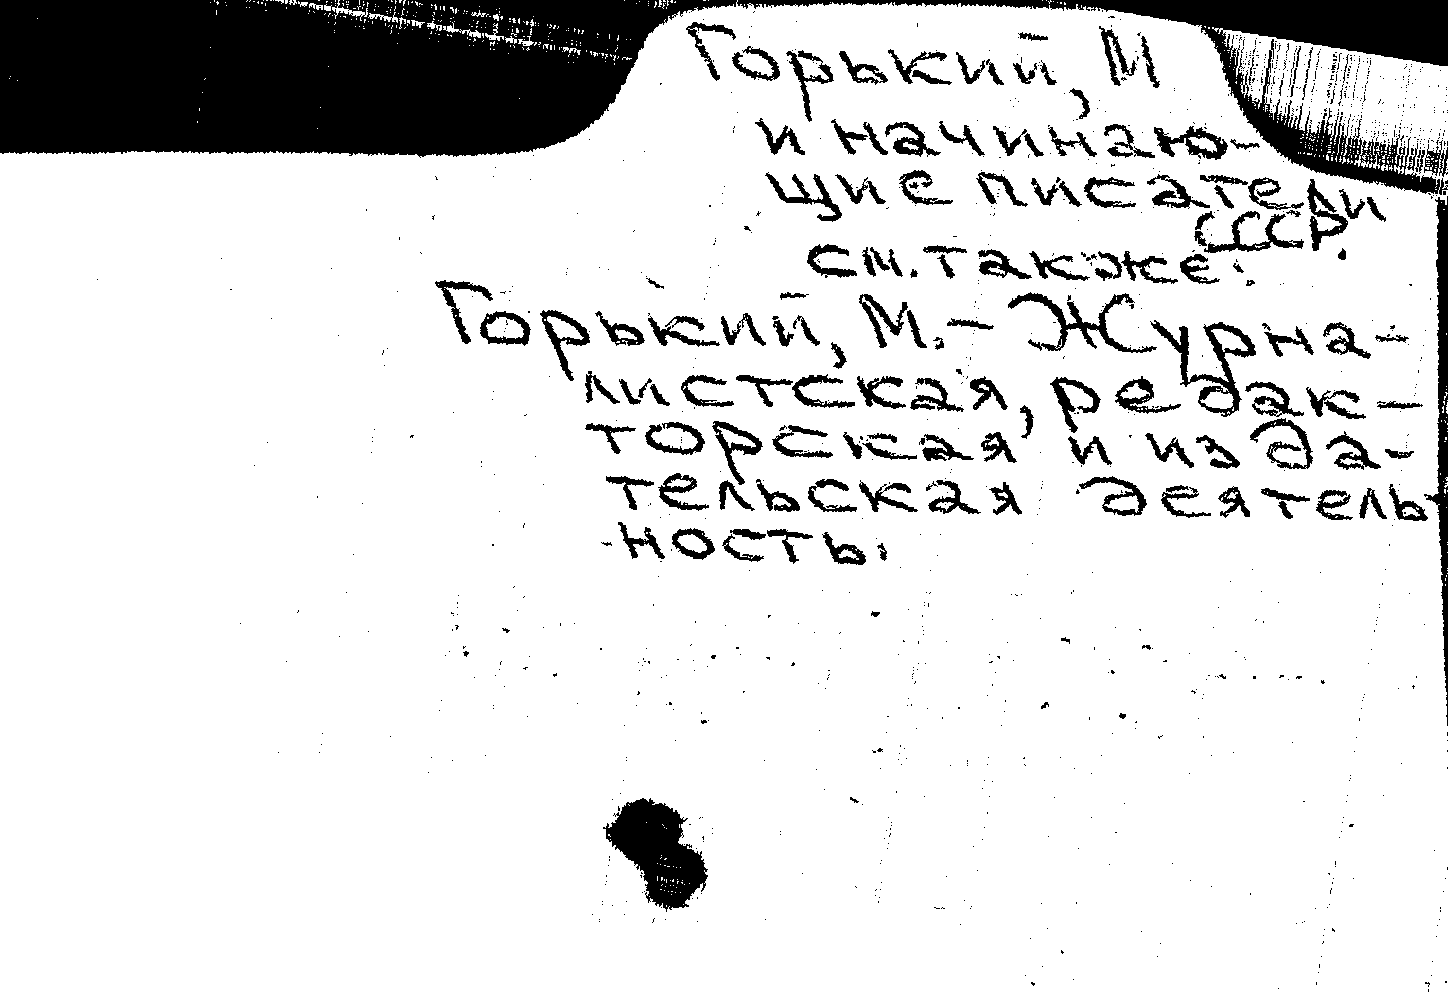 Горький, М
и начинаю-
щие писатели
СССР.
см. также:
Горький, М. - Журна-
листская, редак-
торская и изда-
тельская деятель-
ность.